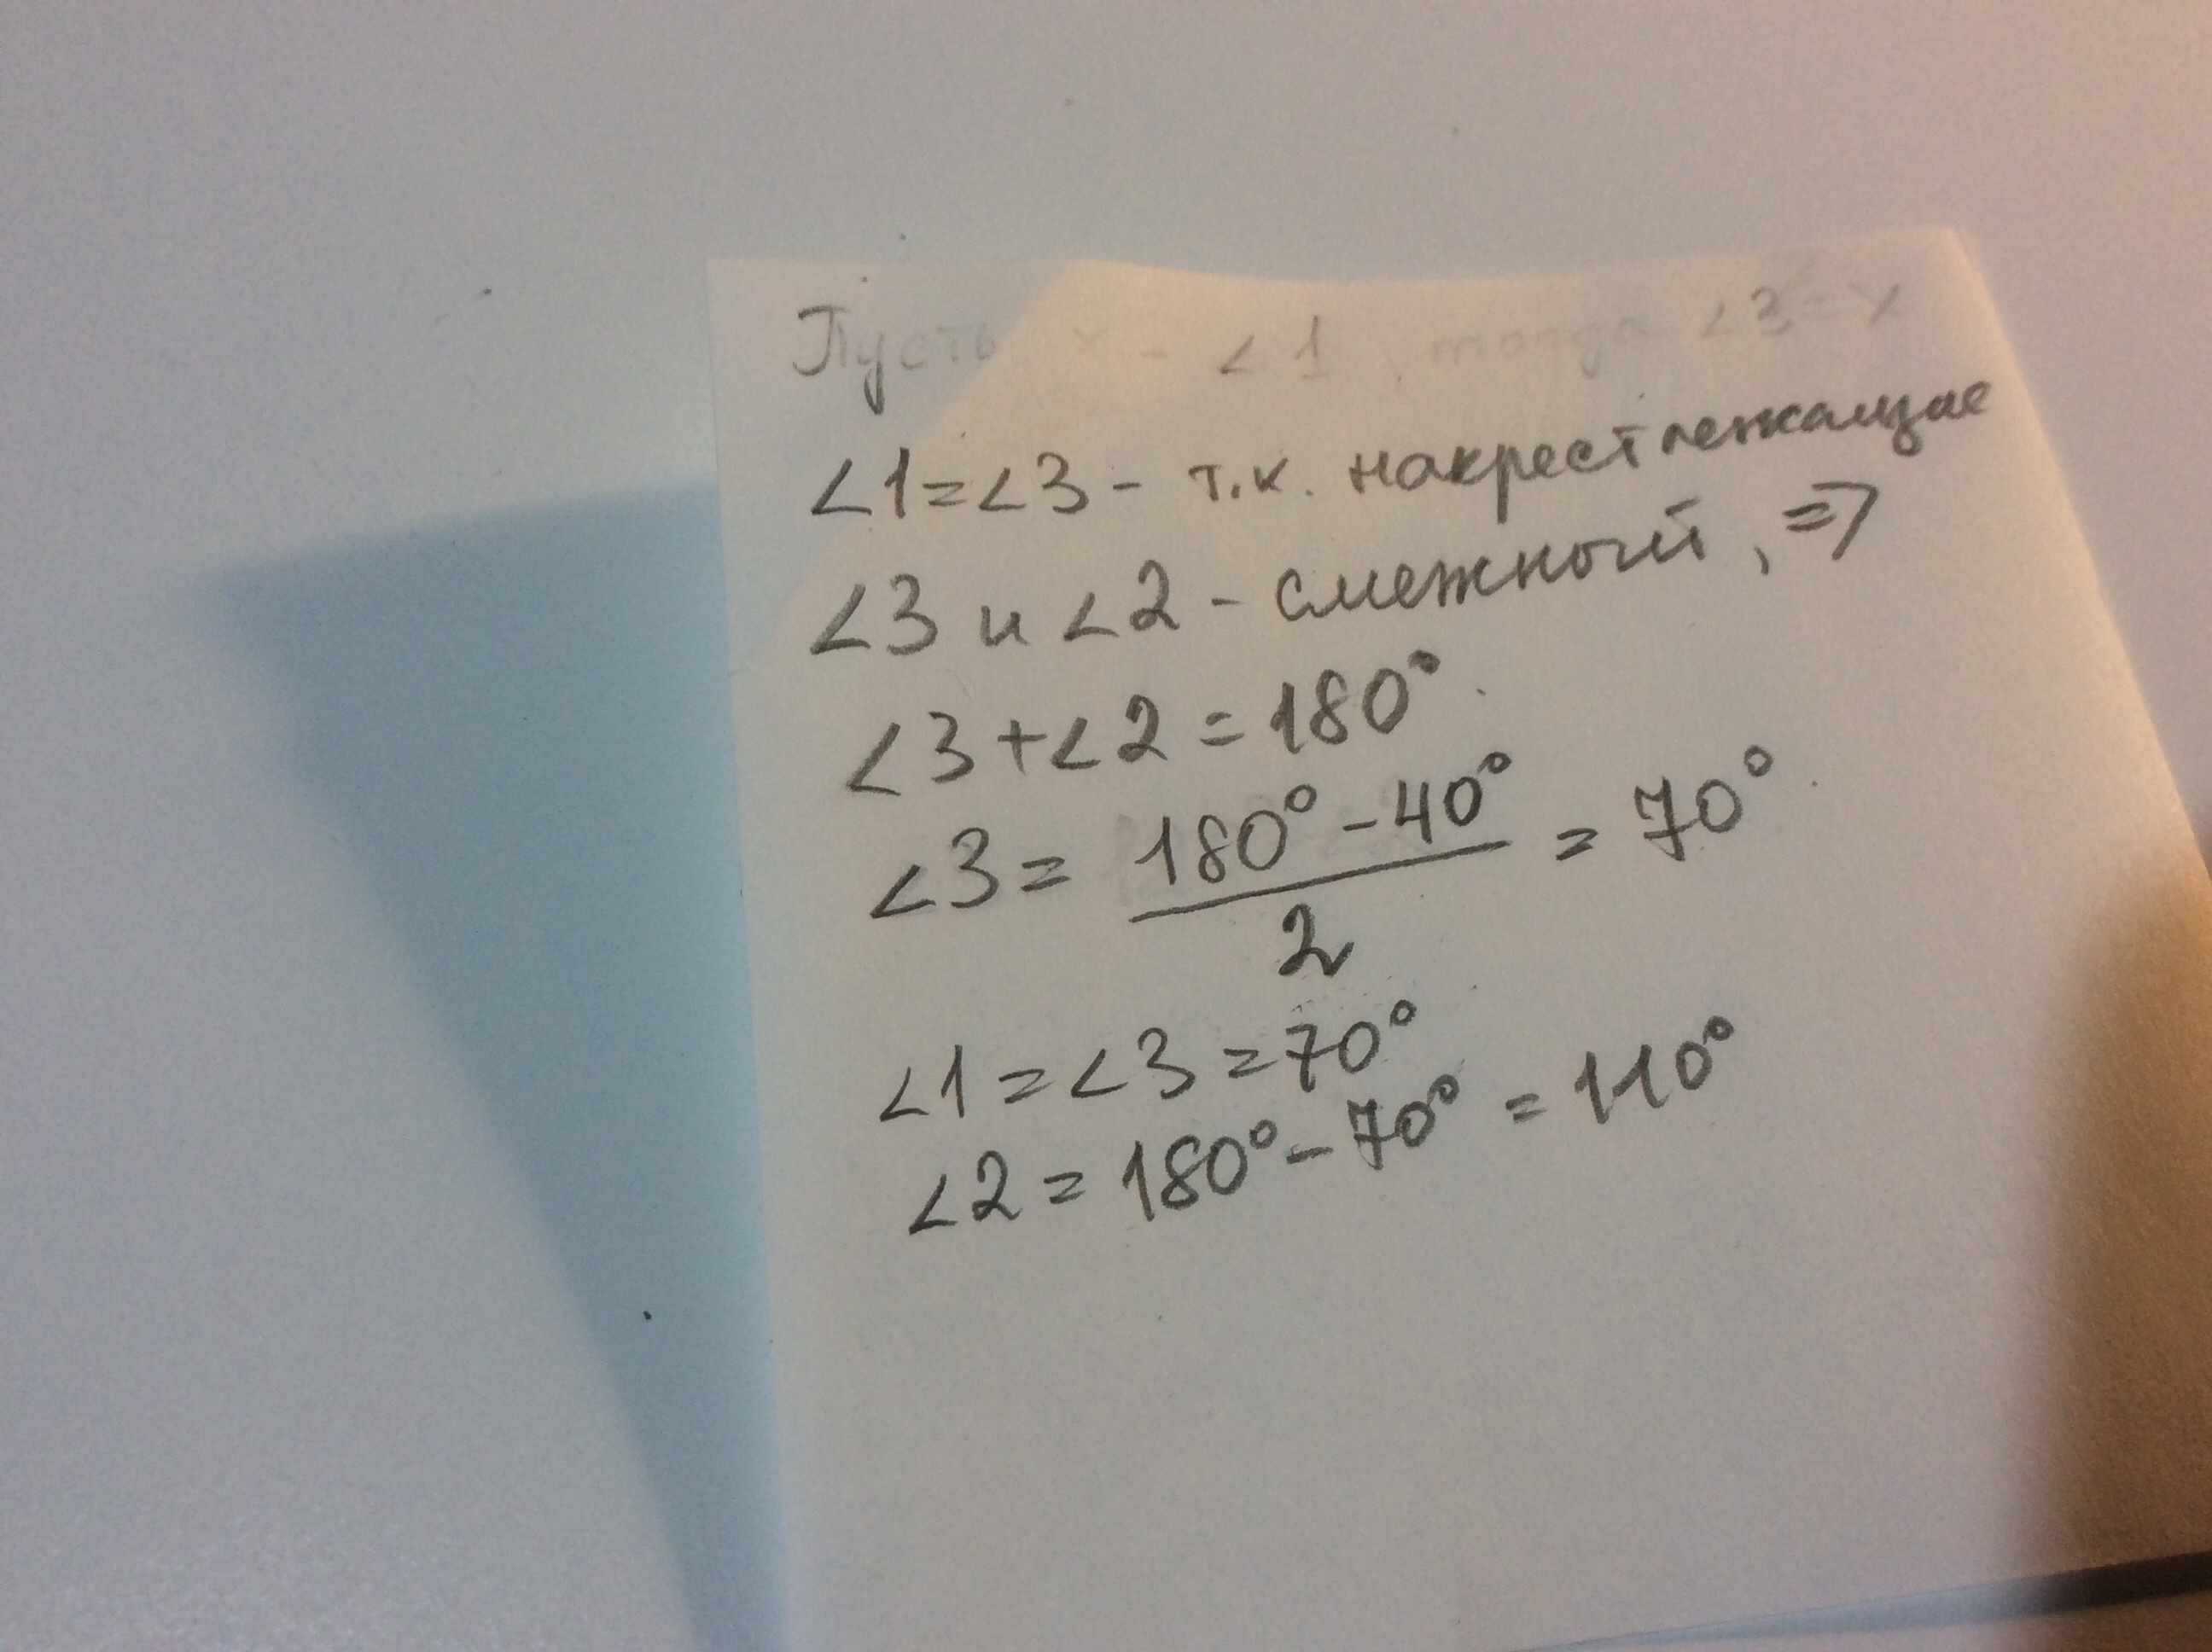 Пусть x - ∠1, тогда ∠3 = x
∠1=∠3 - т.к. накрест лежащие
∠3 и ∠2 - смежный, =>
∠3+∠2 = 180°
∠3 = (180° - 40°)/2 = 70°
∠1 = ∠3 = 70°
∠2 = 180° - 70° = 110°